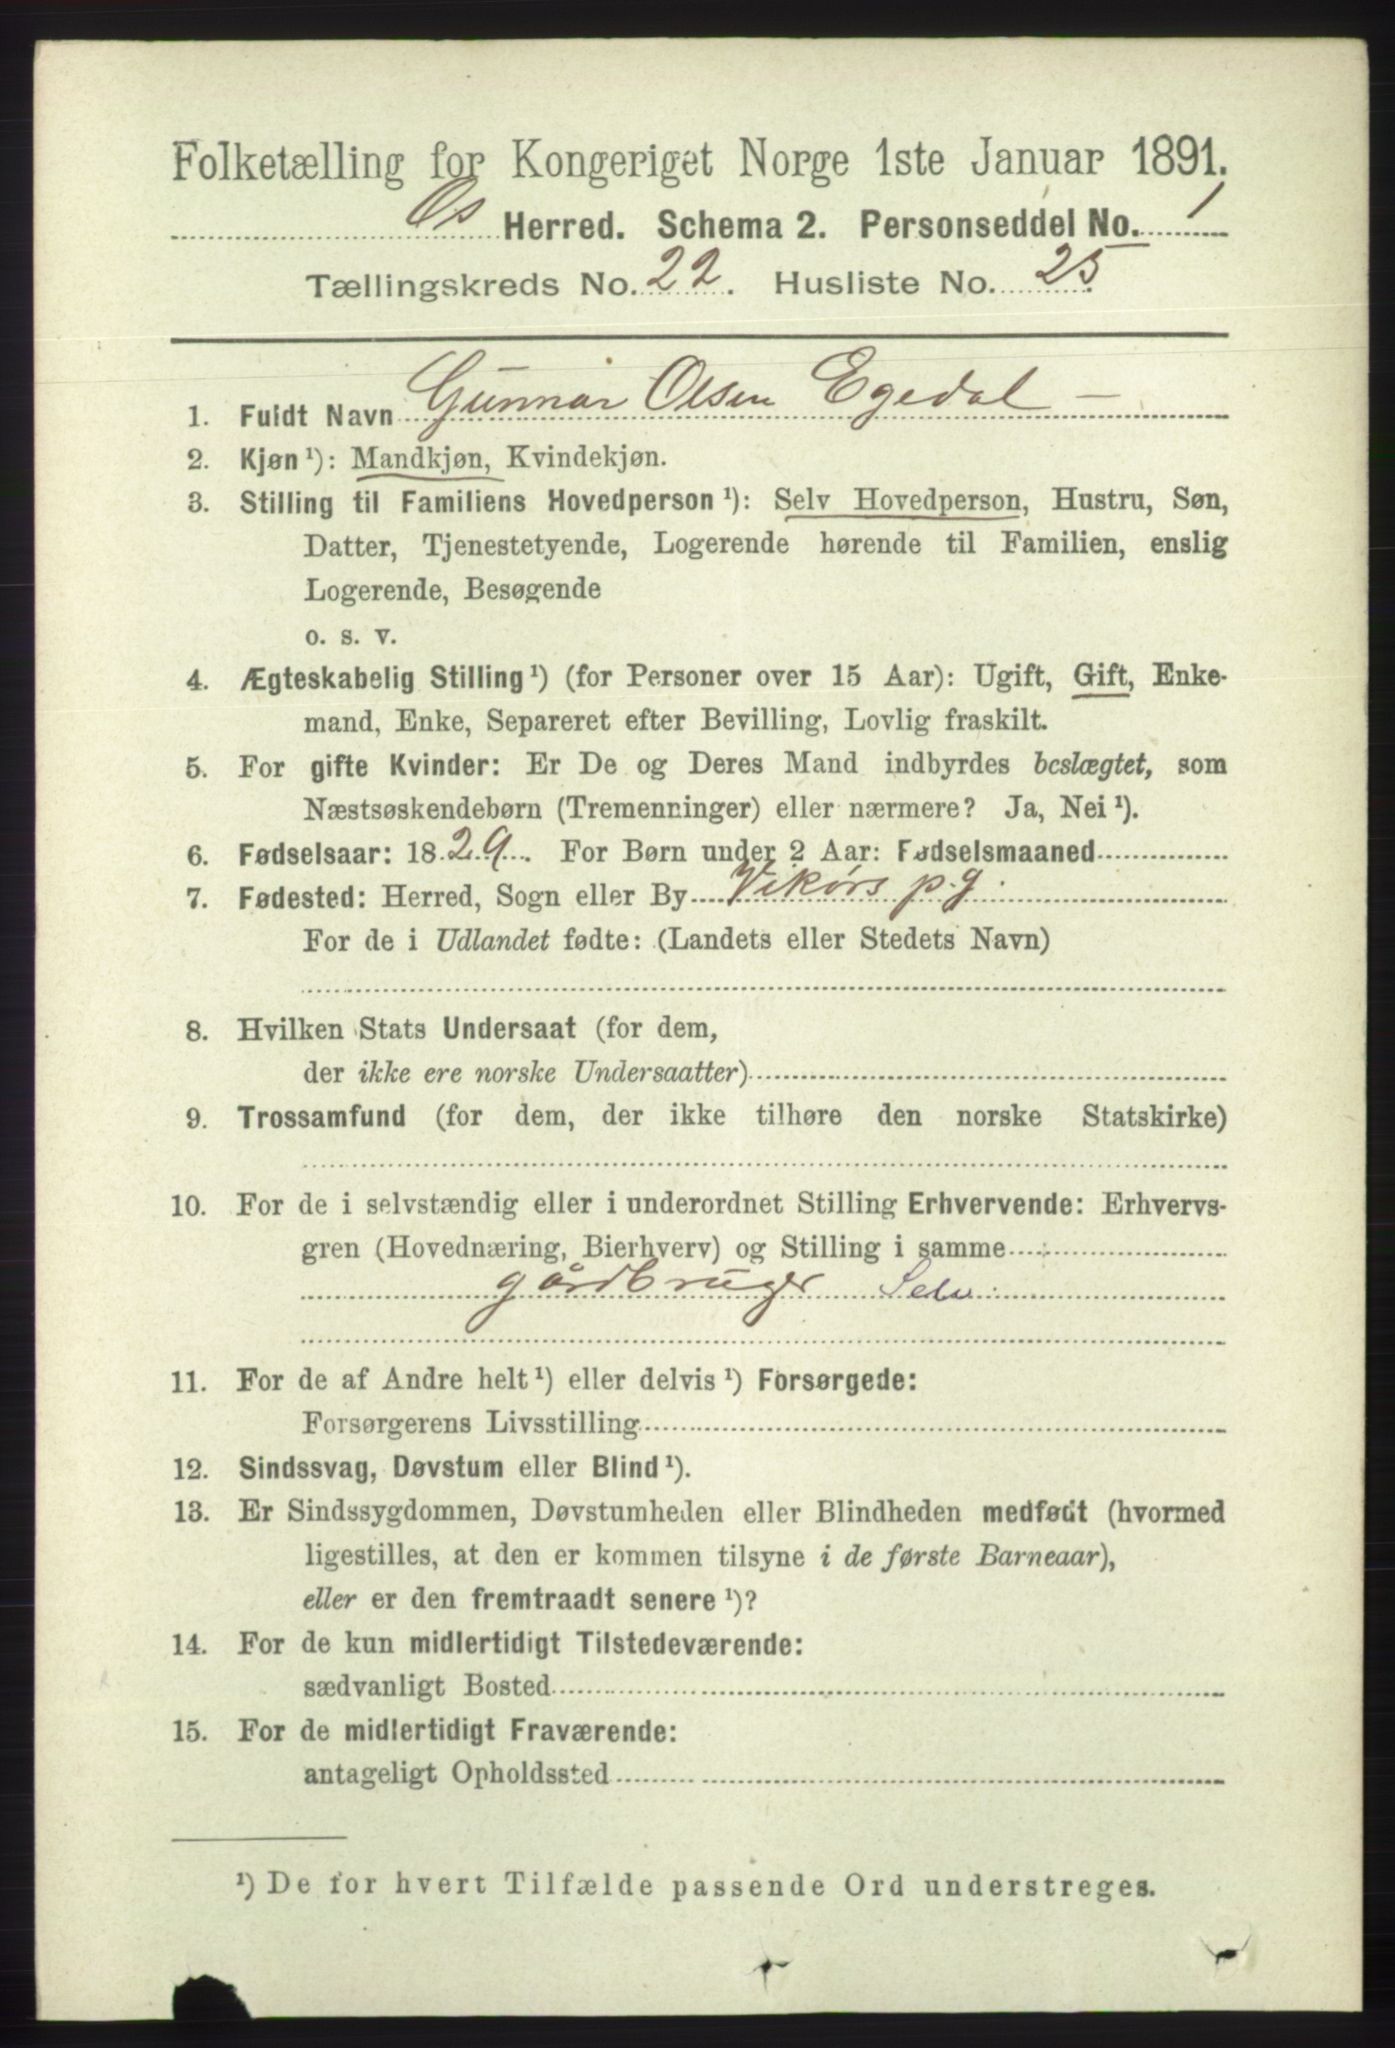 Folketælling for Kongeriget Norge 1ste Januar 1891.
Os Herred. Schema 2. Personseddel No. 1
Tællingskreds No. 22. Husliste No. 25
1. Fuldt Navn Gunnar Olsen Egedal
2. Kjøn ¹): Mandkjøn, Kvindekjøn.
3. Stilling til Familiens Hovedperson ¹): Selv Hovedperson, Hustru, Søn,
Datter, Tjenestetyende, Logerende hørende til Familien, enslig
Logerende, Besøgende
o. s. v.
4. Ægteskabelig Stilling ¹) (for Personer over 15 Aar): Ugift, Gift, Enke-
mand, Enke, Separeret efter Bevilling, Lovlig fraskilt.
5. For gifte Kvinder: Er De og Deres Mand indbyrdes beslægtet, som
Næstsøskendebørn (Tremenninger) eller nærmere? Ja, Nei ¹).
6. Fødselsaar: 1829. For Børn under 2 Aar: Fødselsmaaned
7. Fødested: Herred, Sogn eller By Vikørs p.g.
For de i Udlandet fødte: (Landets eller Stedets Navn)
8. Hvilken Stats Undersaat (for dem,
der ikke ere norske Undersaatter)
9. Trossamfund (for dem, der ikke tilhøre den norske Statskirke)
10. For de i selvstændig eller i underordnet Stilling Erhvervende: Erhvervs-
gren (Hovednæring, Bierhverv) og Stilling i samme
gårdbruger Selv
11. For de af Andre helt ¹) eller delvis ¹) Forsørgede:
Forsørgerens Livsstilling
12. Sindssvag, Døvstum eller Blind ¹).
13. Er Sindssygdommen, Døvstumheden eller Blindheden medfødt (hvormed
ligestilles, at den er kommen tilsyne i de første Barneaar),
eller er den fremtraadt senere ¹)?
14. For de kun midlertidigt Tilstedeværende:
sædvanligt Bosted
15. For de midlertidigt Fraværende:
antageligt Opholdssted
¹) De for hvert Tilfælde passende Ord understreges.